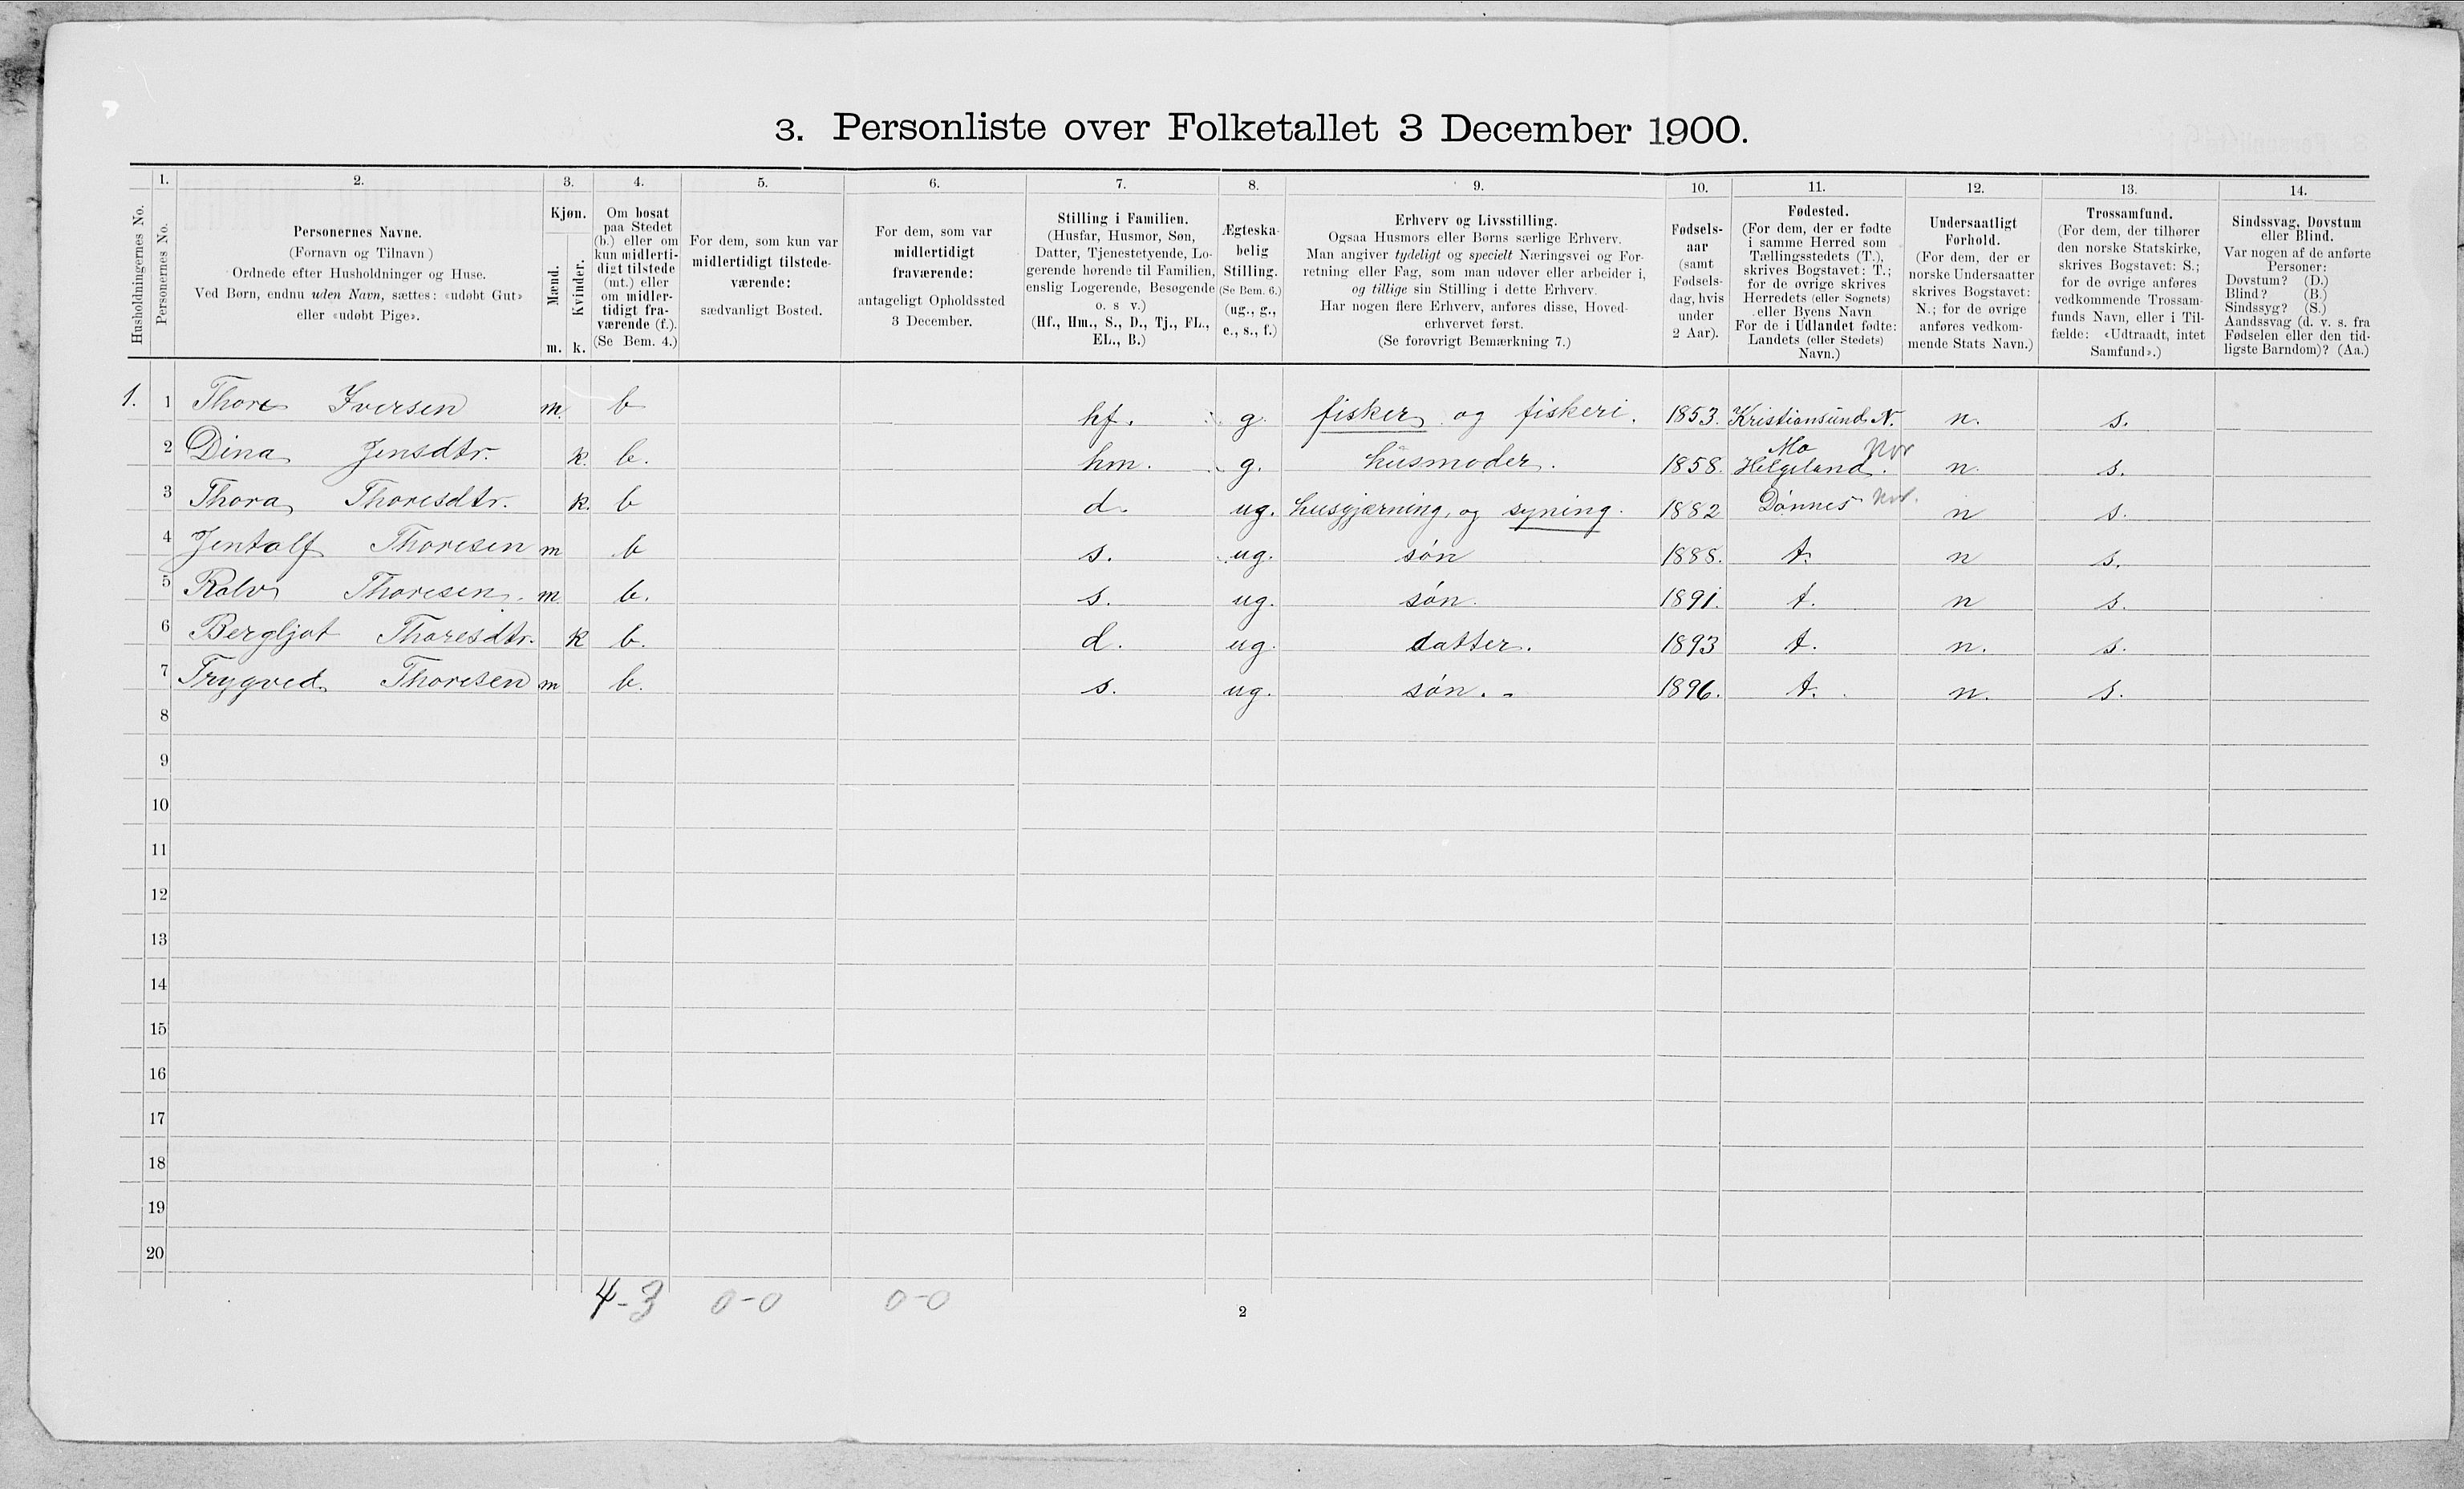 3. Personliste over Folketallet 3 December 1900.
Husholdningernes No.
1. Personernes No.
2. Personernes Navne.
(Fornavn og Tilnavn)
Ordnede efter Husholdninger og Huse.
Ved Børn, endnu uden Navn, sættes: «udøbt Gut»
eller «udøbt Pige».
3. Kjøn.
Mænd. m.
Kvinder. k.
4. Om bosat
paa Stedet
(b.) eller om
kun midlerti-
digt tilstede
(mt.) eller
om midler-
tidigt fra-
værende (f.).
(Se Bem. 4.)
5. For dem, som kun var
midlertidigt tilstede-
værende:
sædvanligt Bosted.
6. For dem, som var
midlertidigt
fraværende:
antageligt Opholdssted
3 December.
7. Stilling i Familien.
(Husfar, Husmor, Søn,
Datter, Tjenestetyende, Lo-
gerende hørende til Familien,
enslig Logerende, Besøgende
o. s v.)
(Hf., Hm., S., D., Tj., FL.,
EL., B.)
8. Ægteska-
belig
Stilling.
(Se Bem. 6.)
(ug., g.,
e., s., f.)
9. Erhverv og Livsstilling.
Ogsaa Husmors eller Børns særlige Erhverv.
Man angiver tydeligt og specielt Næringsvei og For-
retning eller Fag, som man udøver eller arbeider i,
og tillige sin Stilling i dette Erhverv.
Har nogen flere Erhverv, anføres disse, Hoved-
erhvervet først.
(Se forøvrigt Bemærkning 7.)
10. Fødsels-
aar
(samt
Fødsels-
dag, hvis
under
2 Aar).
11. Fødested.
(For dem, der er fødte
i samme Herred som
Tællingsstedets (T.),
skrives Bogstavet: T.;
for de øvrige skrives
Herredets (eller Sognets)
eller Byens Navn
For de i Udlandet fødte:
Landets (eller Stedets)
Navn.)
12. Undersaatligt
Forhold.
(For dem, der er
norske Undersaatter
skrives Bogstavet:
N.; for de øvrige
anføres vedkom-
mende Stats Navn.)
13. Trossamfund.
(For dem, der tilhører
den norske Statskirke,
skrives Bogstavet: S.;
for de øvrige anføres
vedkommende Trossam-
funds Navn, eller i Til-
fælde: «Udtraadt, intet
Samfund».)
14. Sindssvag, Døvstum
eller Blind.
Var nogen af de anførte
Personer:
Døvstum? (D.)
Blind? (B.)
Sindssyg? (S.)
Aandssvag (d. v. s. fra
Fødselen eller den tid-
ligste Barndom)? (Aa.)
1. 1 Thore Iversen m. b hf. g. fisker og fiskeri. 1853. Kristiansund N. n. s.
2 Dina Jensdtr. k. b. hm. g. husmoder. 1858. Mo Helgeland. Nor n. s.
3 Thora Thoresdtr. k. b d. ug. husgjærning, og syning. 1882 Dønnes Nor. n s.
4 Jentolf Thoresen m b s. ug. søn 1888. t. n s.
5 Rolv Thoresen. m. b. s. ug. søn. 1891. t. n s.
6 Bergljot Thoresdtr. k b. d. ug. datter. 1893 t. n. s.
7 Trygved Thoresen m b. s. ug. søn. 1896. t. n. s.
8
9
10
11
12
13
14
15
16
17
18
19
20
4-3 0-0 0-0
2